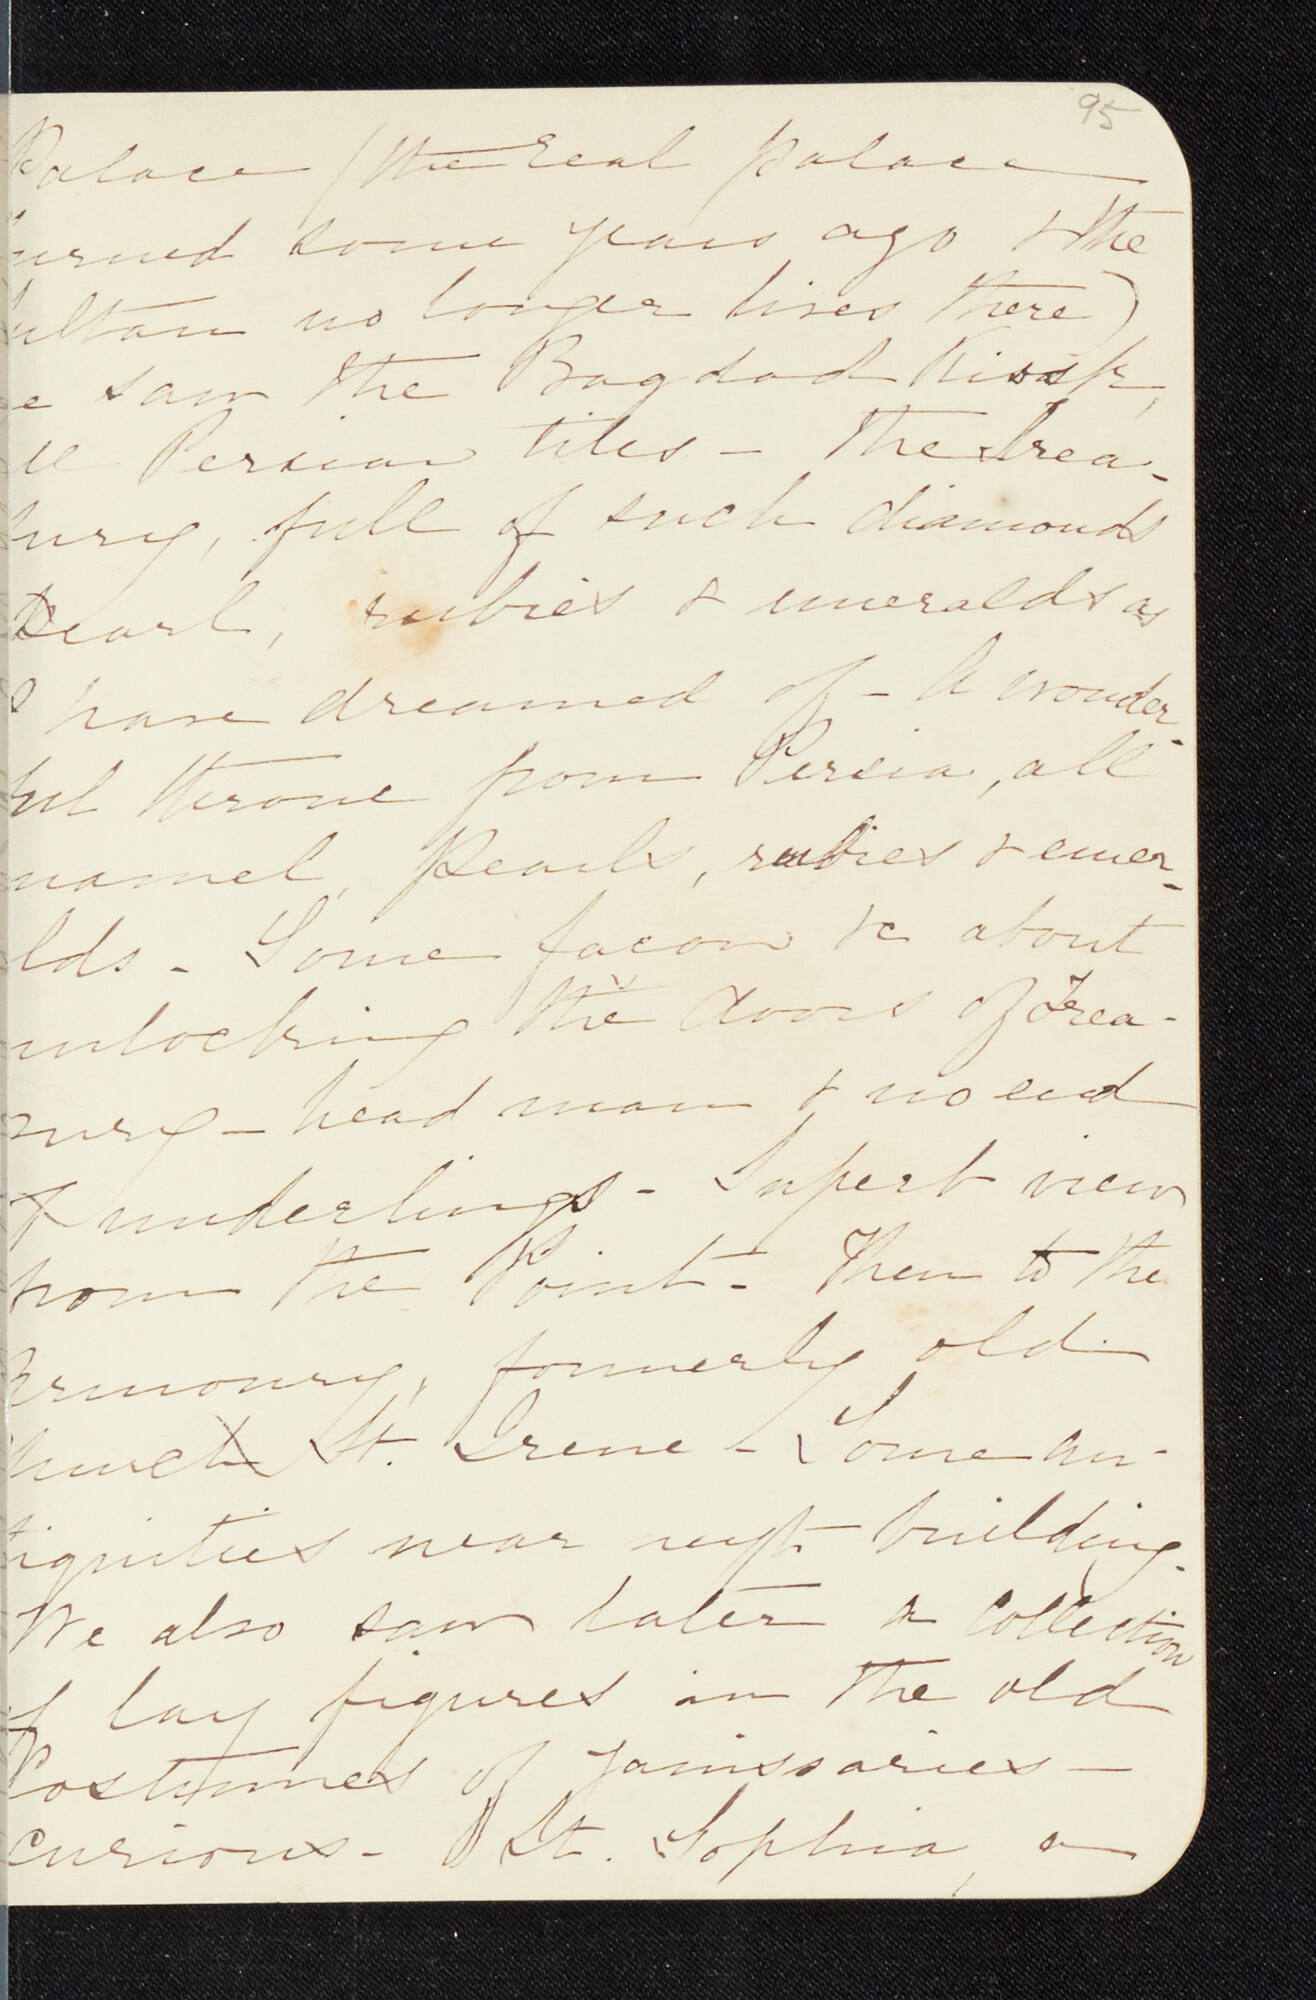 95
Palace (the real palace
burned some years ago & the
Sultan no longer lives there)
we saw the Bagdad Kiosk,
all Persian tiles - The Trea-
sury, full of such diamonds
pearl, rubies & emeralds as
I have dreamed of - A wonder-
ful throne from Persia, all
enamel, pearls, rubies & emer-
alds - Some facon &c about
unlocking the doors of Trea-
sury - head man & no end
of underlings - Superb view
from the Point - Then to the
Armoury, formerly old
church St. Irene - Some an-
tiquities near next building.
We also saw later a collection
of lay figures in the old
Costumes of Janissaries -
curious - St. Sophia, a